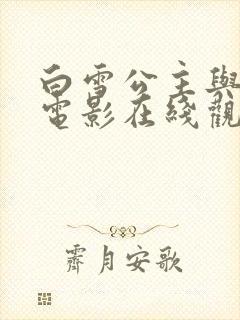 白雪公主與
電影在綫觀
霽月安歌